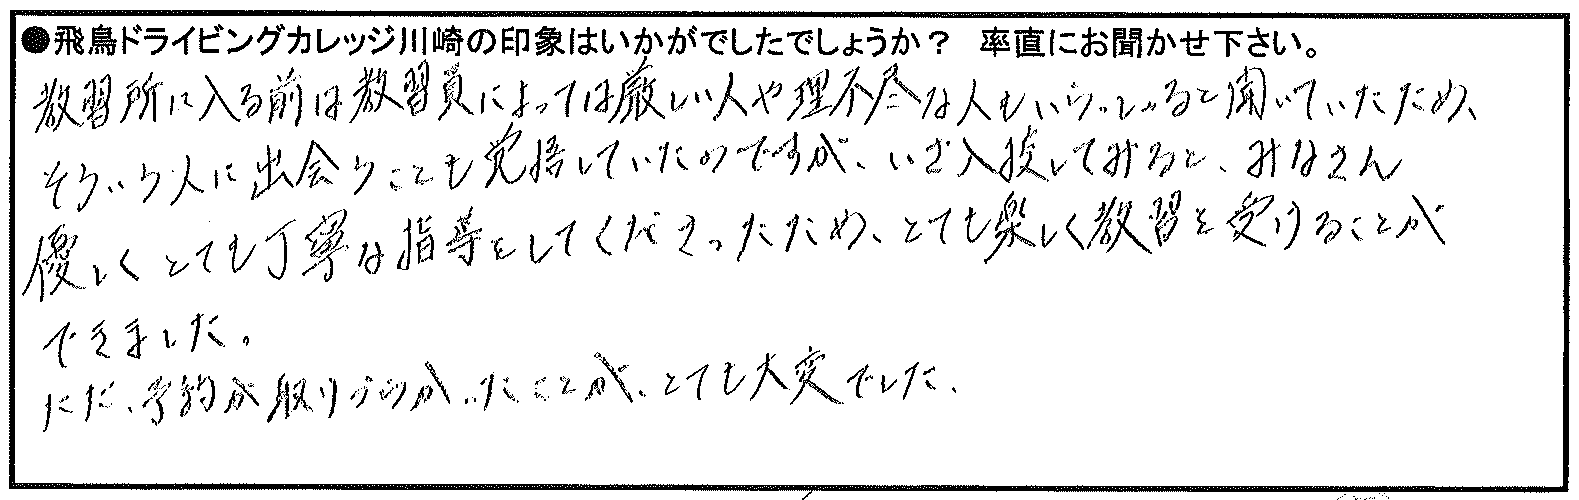 ●飛鳥ドライビングカレッジ川崎の印象はいかがでしたでしょうか？　率直にお聞かせ下さい。
教習所に入る前は教習員によっては厳しい人や理不尽な人もいらっしゃると聞いていたため、
そういう人に出会うことも覚悟していたのですが、いざ入校してみると、みなさん
優しくとても丁寧な指導をしてくださったため、とても楽しく教習を受けることが
できました。
ただ、予約が取りづらかったことが、とても大変でした。